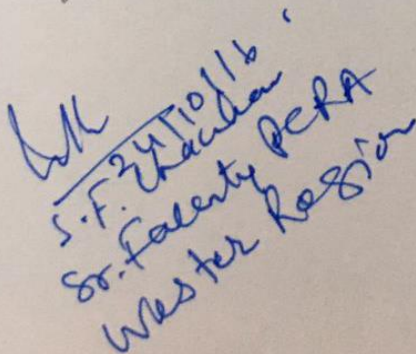 24/10/16
S.F. Chauhan
Sr. Faculty PCRA
Wester Region